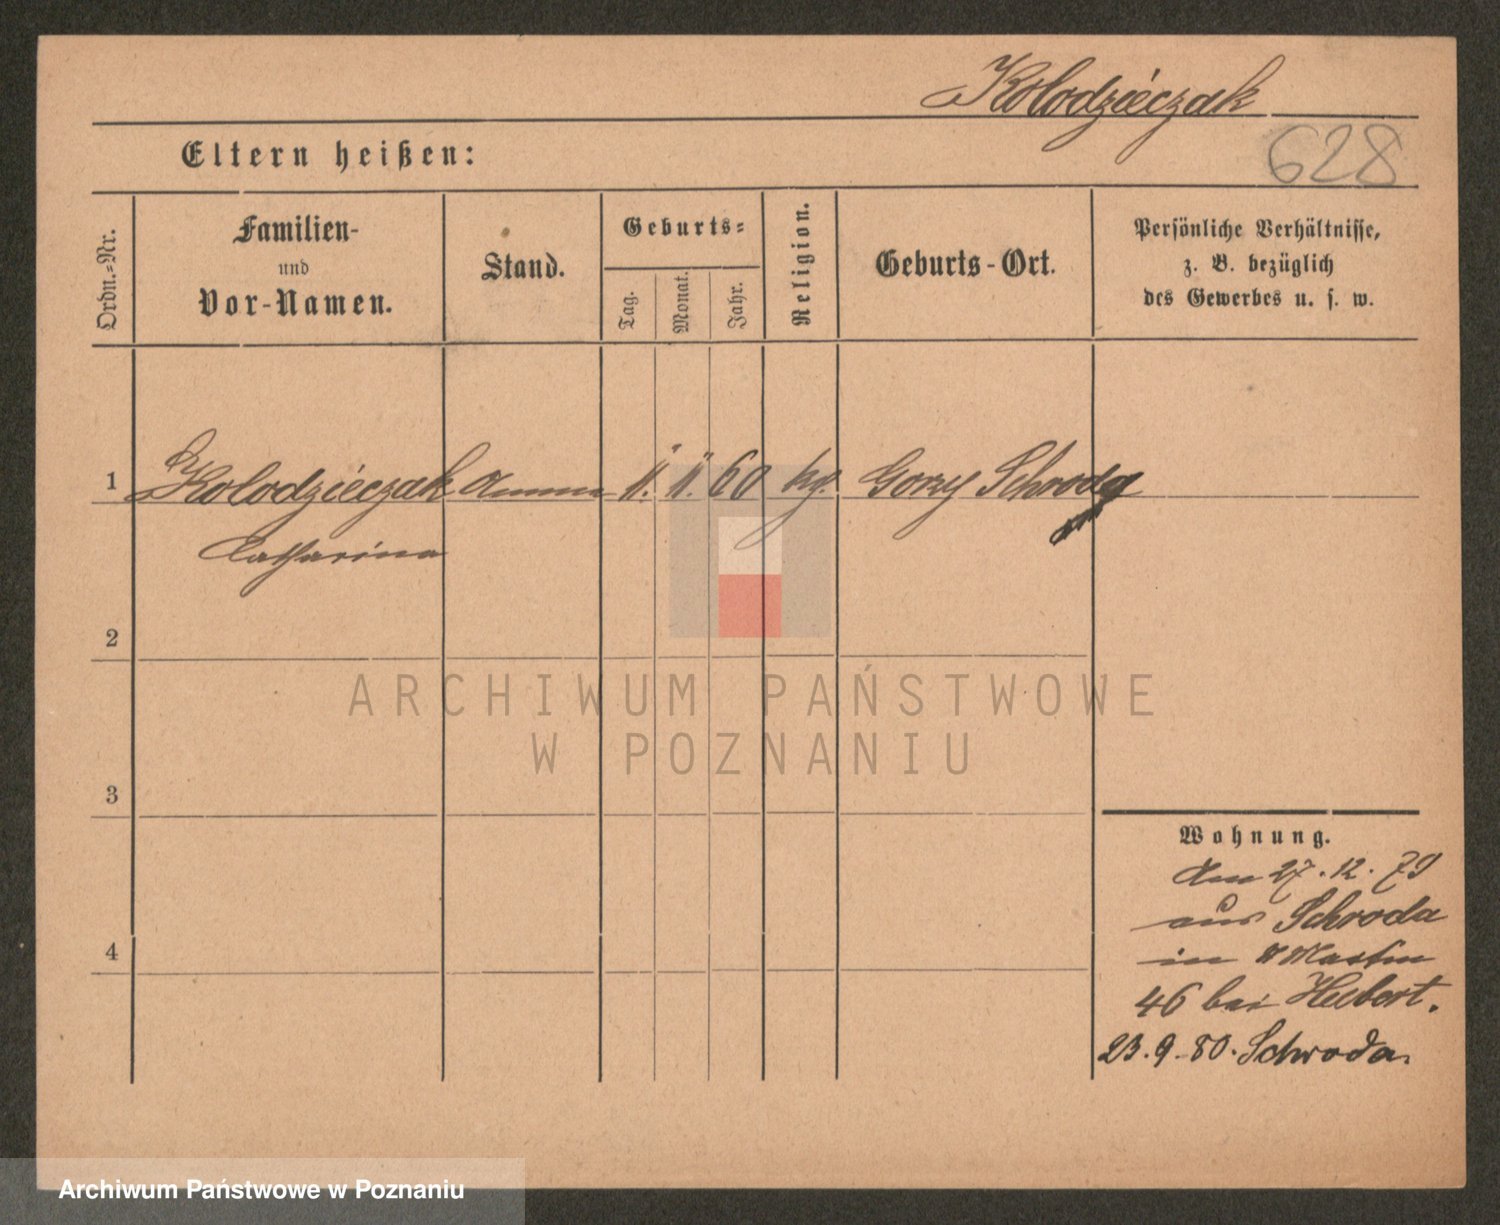 Kolodziéczak
628
Eltern heißen:
Ordn.-Nr.
Familien-
und
Vor-Namen.
Stand.
Geburts-
Tag.
Monat.
Jahr.
Religion.
Geburts-Ort.
Persönliche Verhältnisse,
z. B. bezüglich
des Gewerbes u. s. w.
1 Kolodziéczak Amme 11. 11. 60 kg. Gorzy Schroda
Catharina
2
3
4
ARCHIWUM PAŃSTWOWE
W POZNANIU
Wohnung.
Am 27.12.79
aus Schroda
in Martin
46 bei
23.9.80. Schroda.
Archiwum Państwowe w Poznaniu